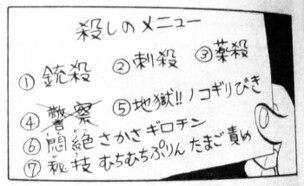 殺しのメニュー
① 銃殺 ② 刺殺 ③ 薬殺
④ 警察 ⑤ 地獄!! ノコギリびき
⑥ 悶絶 さかさギロチン
⑦ 秘技 むちむちぷりん たまご責め